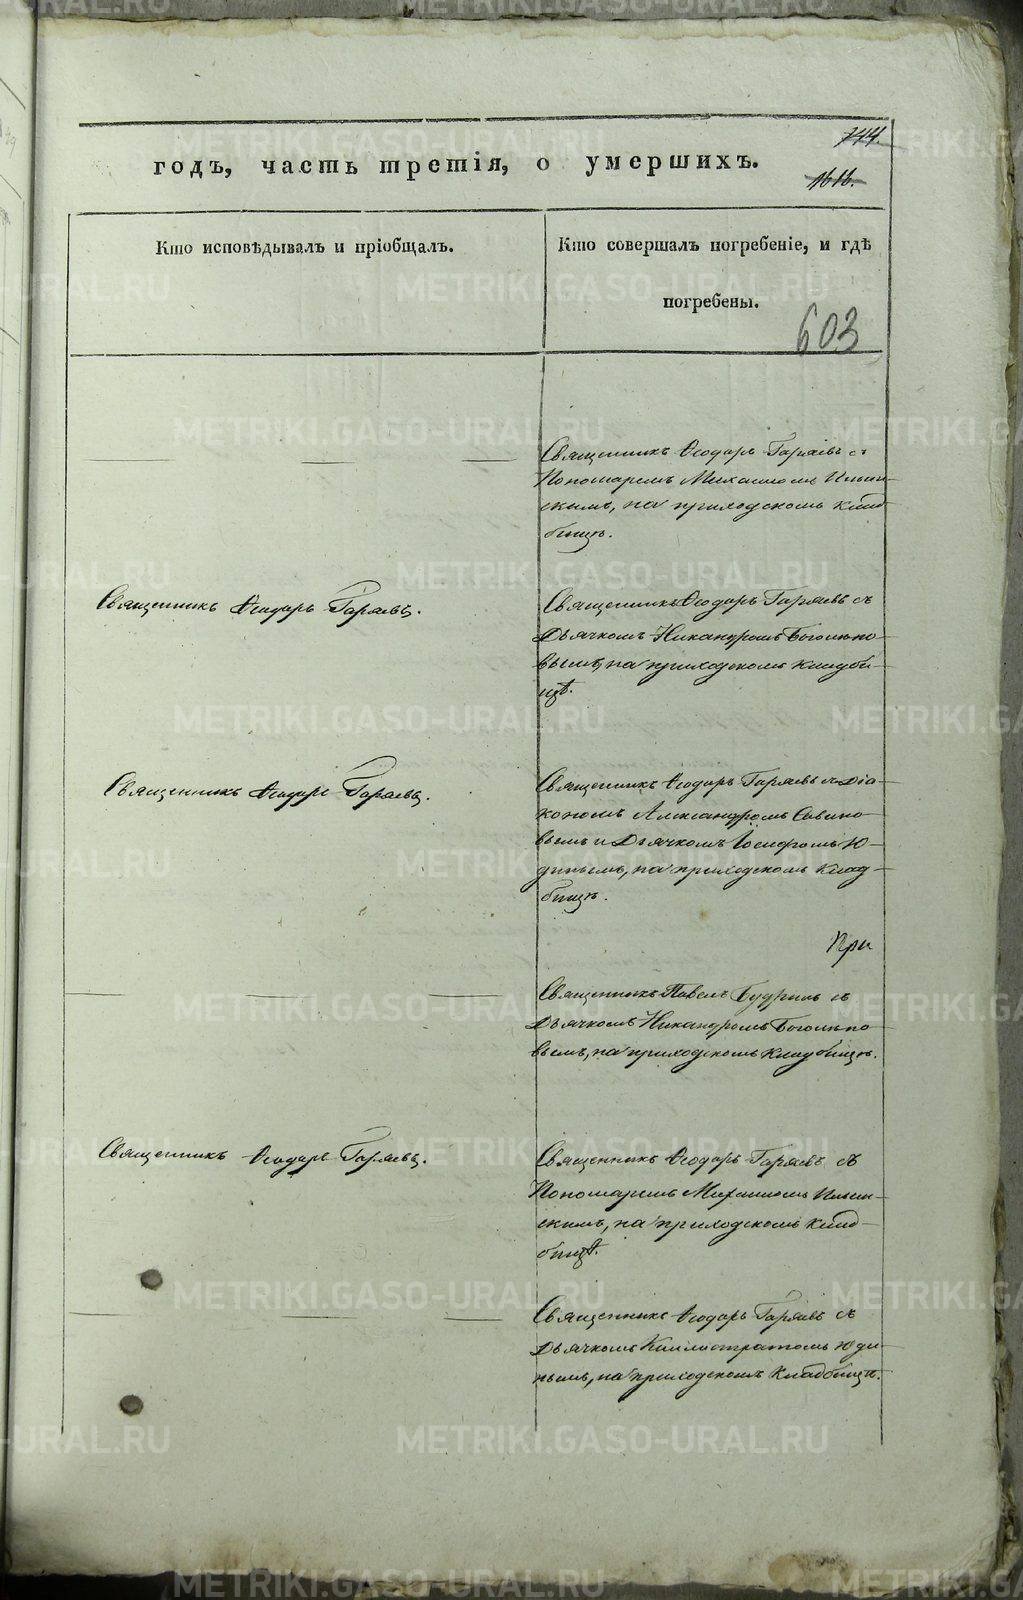 744.
годъ, часть третія, о умершихъ.
1616.
Кто исповѣдывалъ и пріобщалъ.
Кто совершалъ погребеніе, и гдѣ
погребены.
603
Священникъ Ѳеодоръ Гаряевъ съ
Пономаремъ Михаиломъ Ильин-
скимъ, на приходскомъ клад-
бищѣ.
Священникъ Ѳеодоръ Гаряевъ.
Священникъ Ѳеодоръ Гаряевъ съ
Дьячкомъ Никандромъ
вымъ, на приходскомъ кладби-
щѣ.
Священникъ Ѳеодоръ Гаряевъ.
Священникъ Ѳеодоръ Гаряевъ съ Діа-
кономъ Александромъ
вымъ и Дьячкомъ Іосифомъ Ю-
динымъ, на приходскомъ клад-
бищѣ.
При
Священникъ Павелъ съ
Дьячкомъ Никандромъ
вымъ, на приходскомъ кладбищѣ.
Священникъ Ѳеодоръ Гаряевъ.
Священникъ Ѳеодоръ Гаряевъ съ
Пономаремъ Михаиломъ Ильин-
скимъ, на приходскомъ клад-
бищѣ.
Священникъ Ѳеодоръ Гаряевъ съ
Дьячкомъ Каллистратомъ Юди-
нымъ, на приходскомъ кладбищѣ.
METRIKI.GASO-URAL.RU